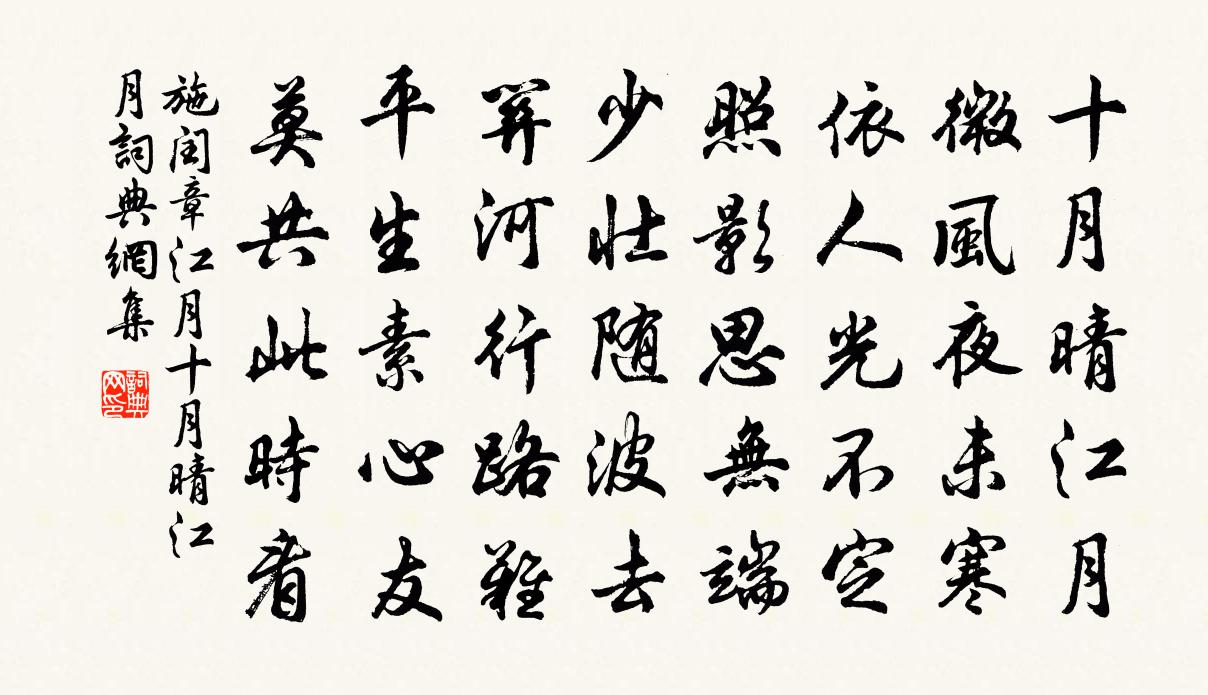 十月晴江月
微風夜未寒
依人光不定
照影思無端
少壯随波去
關河行路難
平生素心友
莫共此時看
施閏章江月十月晴江
月詞典網集
詞典
网印